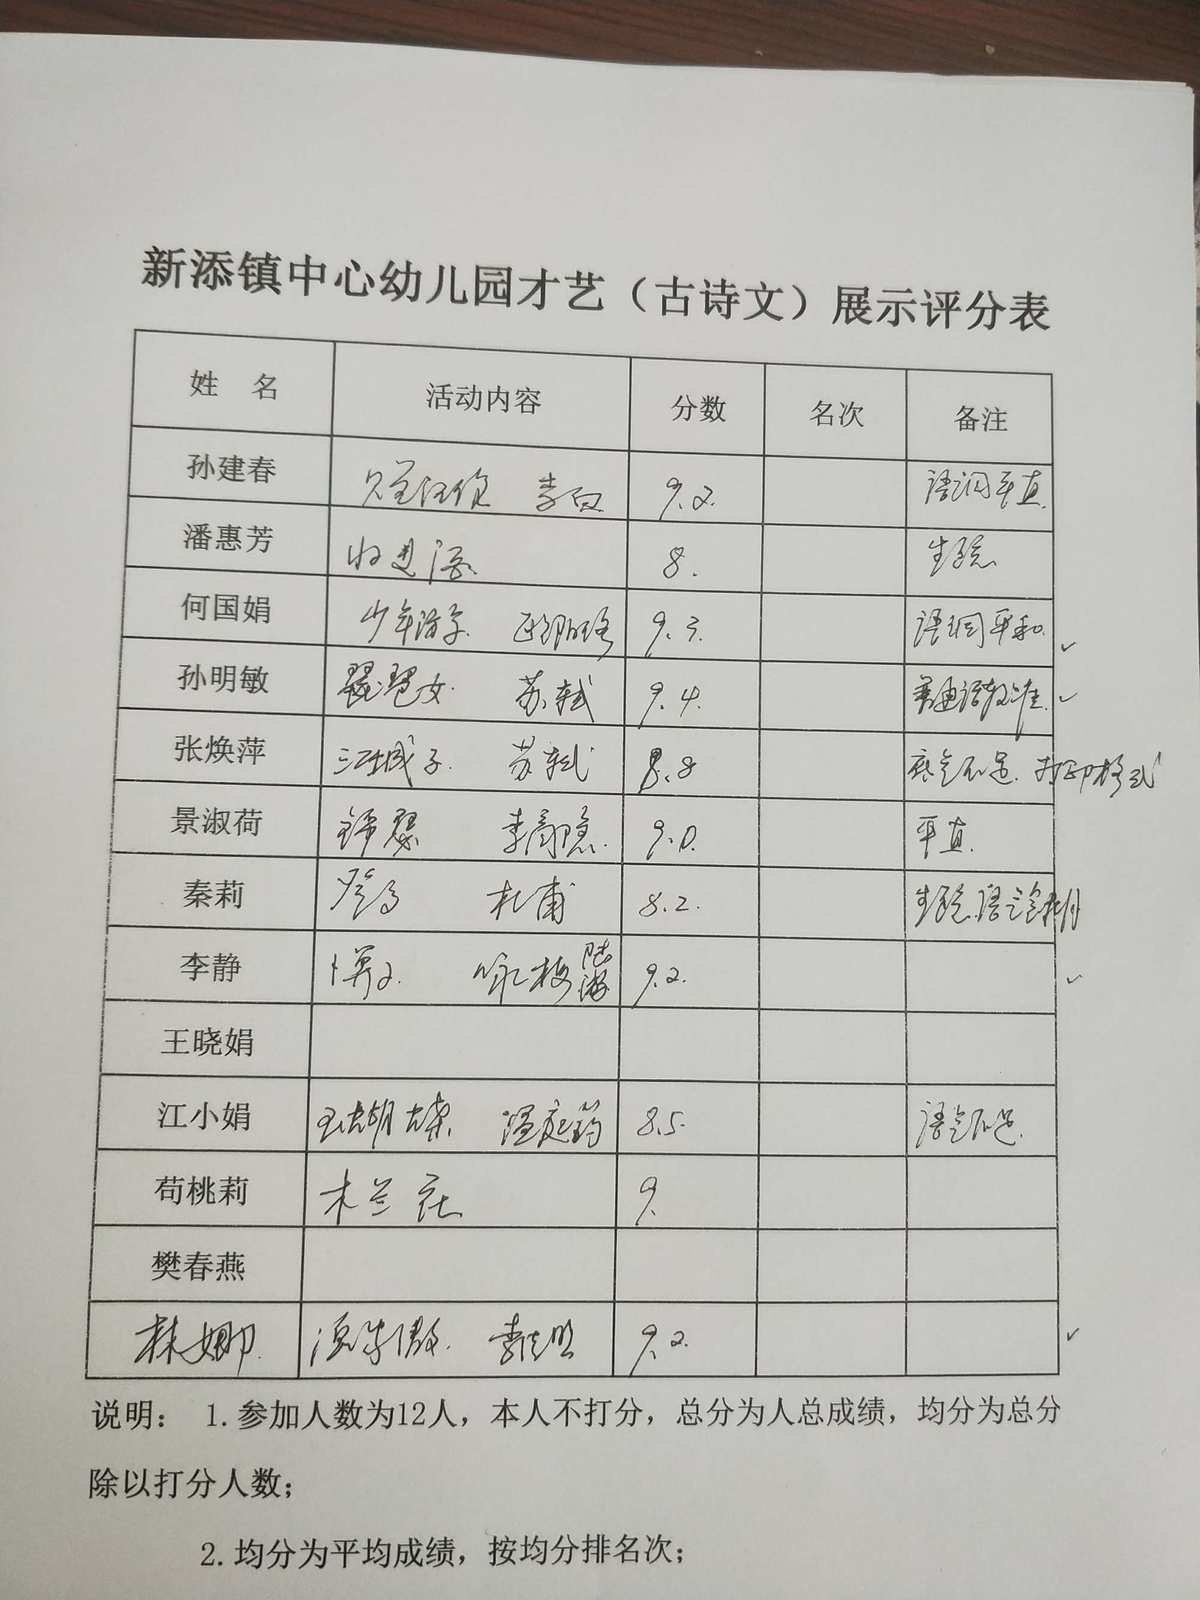 新添镇中心幼儿园才艺（古诗文）展示评分表
姓 名 活动内容 分数 名次 备注
孙建春 李白 9.2 语调平直
潘惠芳 将进酒 8. 生疏
何国娟 少年游 欧阳修 9.3. 语调平和 ✓
孙明敏 琵琶女 苏轼 9.4. 普通话较准 ✓
张焕萍 江城子 苏轼 8.8 底气不足 打印格式
景淑荷 锦瑟 李商隐 9.0. 平直
秦莉 登高 杜甫 8.2. 生疏
李静 卜算子 咏梅 陆游 9.2. ✓
王晓娟
江小娟 玉蝴蝶 温庭筠 8.5. 语气不足
苟桃莉 木兰花 9.
樊春燕
林娜 渔家傲 李清照 9.2. ✓
说明： 1.参加人数为12人，本人不打分，总分为人总成绩，均分为总分
除以打分人数；
2.均分为平均成绩，按均分排名次；